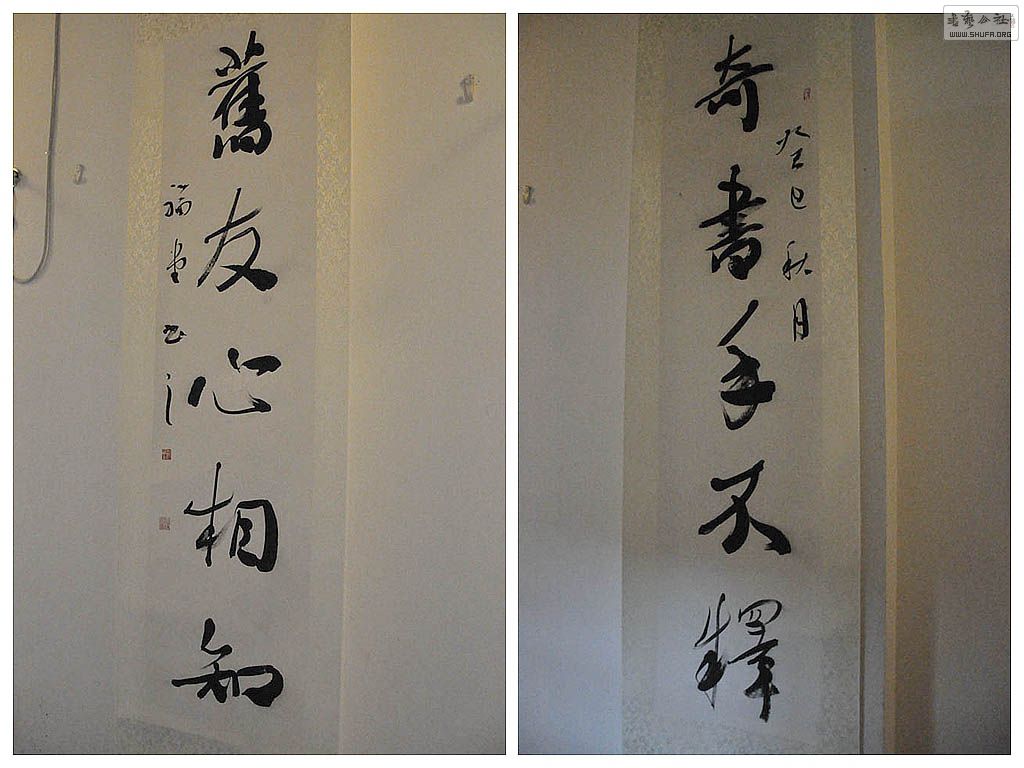 奇書手不釋
癸巳秋月
舊友心相知
瑞堂書
书艺公社
WWW.SHUFA.ORG